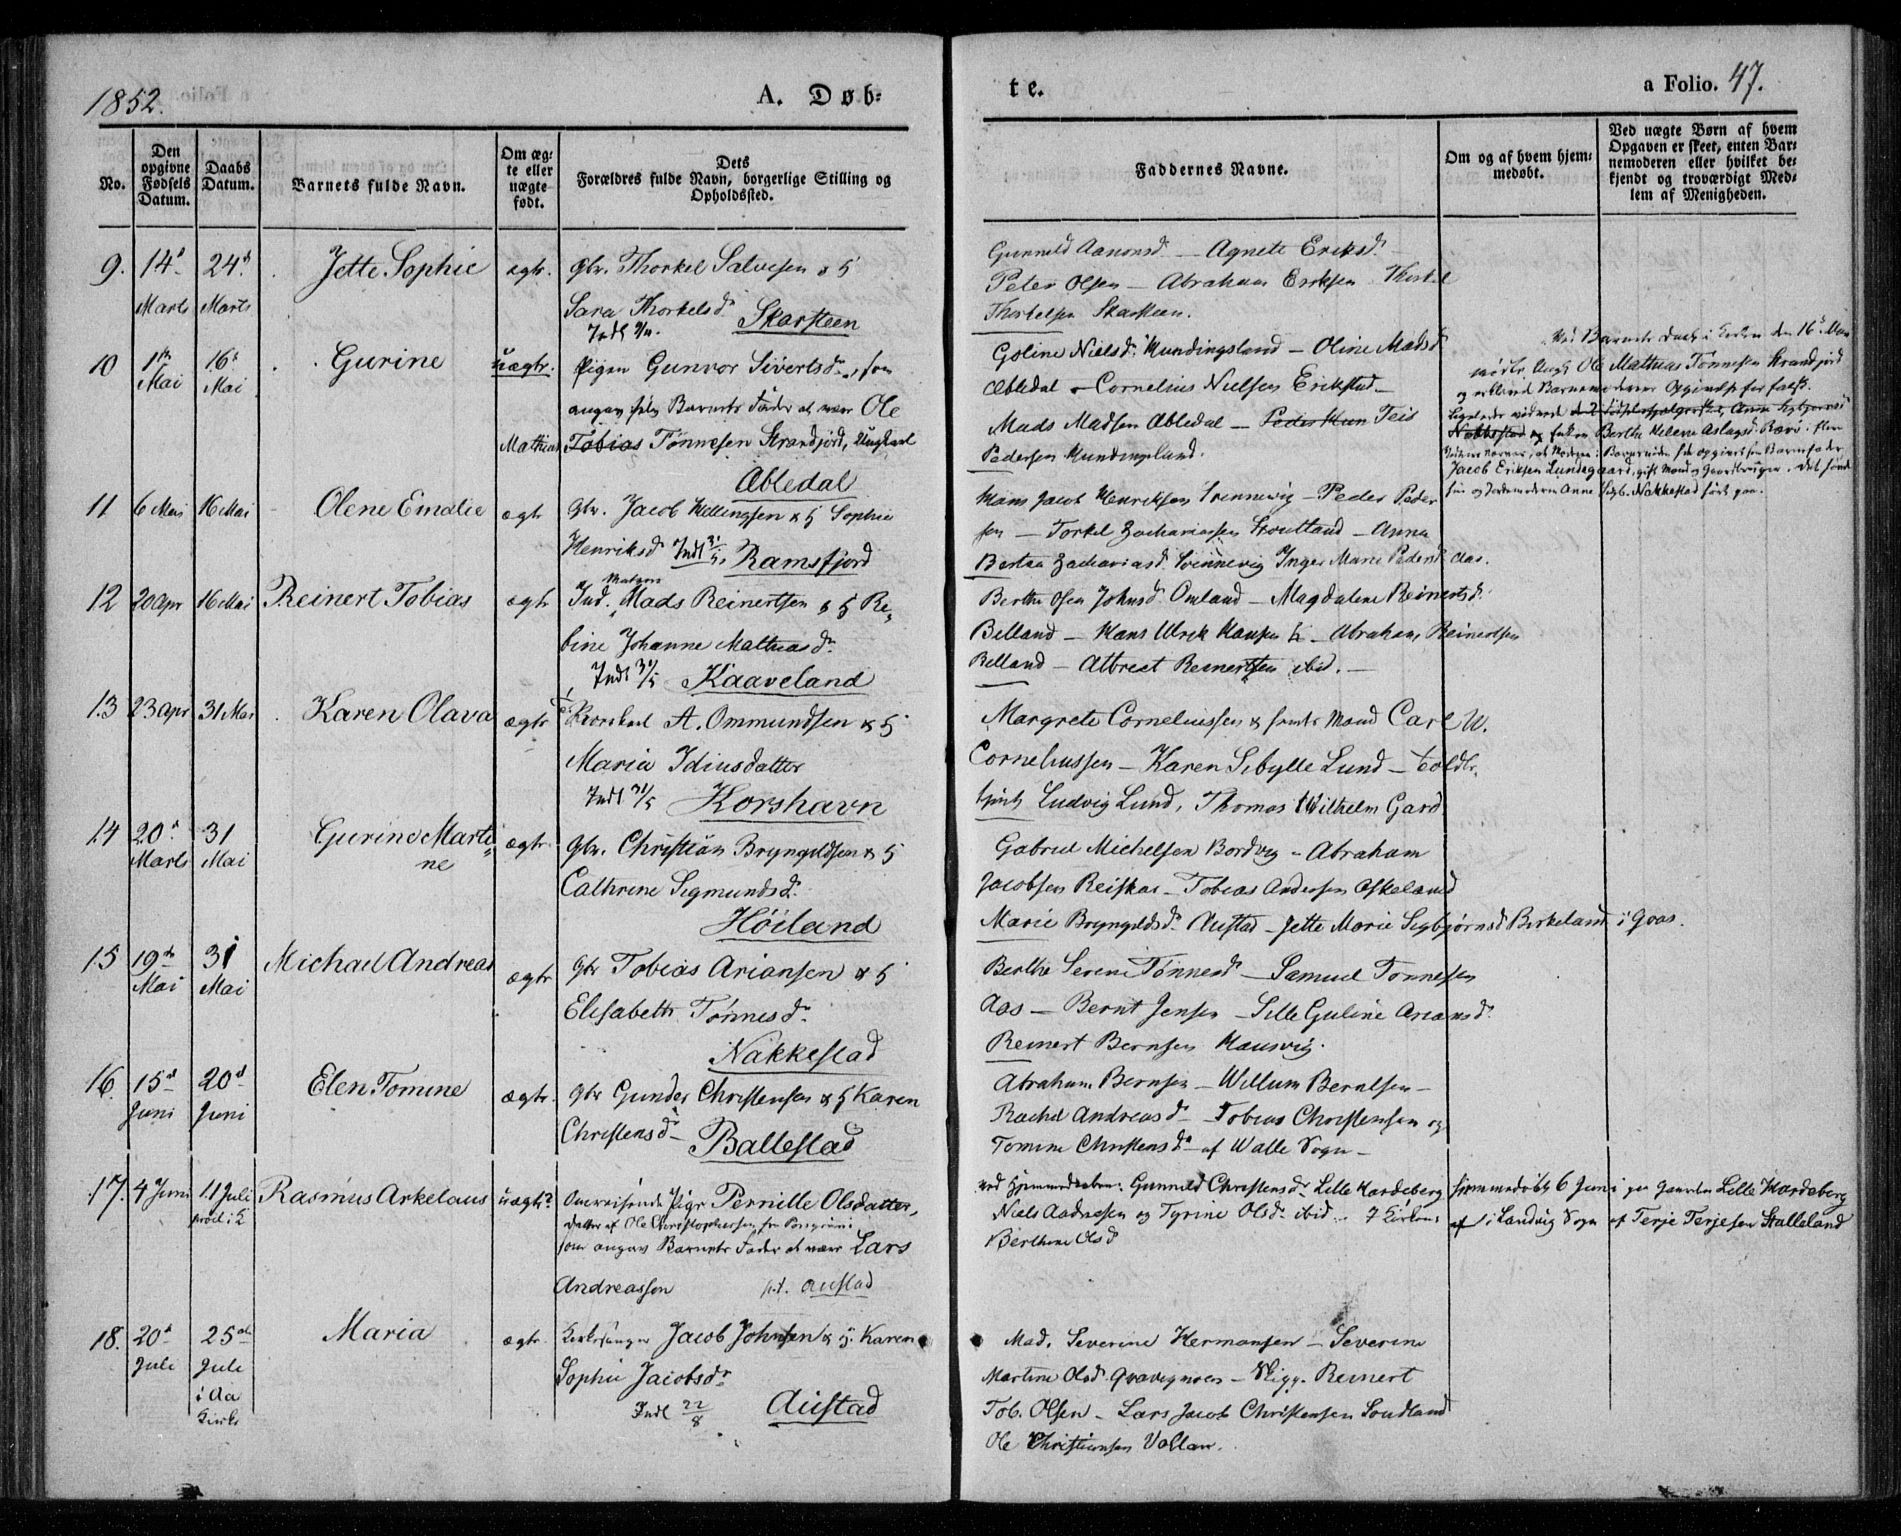 1852.
A. Døb-
te.
a Folio. 47.
No.
Den opgivne Fødsels Datum.
Daabs Datum.
Barnets fulde Navn.
Om æg-
te eller
uægte
født.
Dets
Forældres fulde Navn, borgerlige Stilling og
Opholdssted.
Faddernes Navne.
Om og af hvem hjem-
medøbt.
Ved uægte Børn af hvem
Opgaven er skeet, enten Bar-
nemoderen eller hvilket be-
kjendt og troværdigt Med-
lem af Menigheden.
9. 14d Marts 24d Marts Jette Sophie ægte. Gbr. Thorkel Salvesen & h
Sara Thorkelsdr Skarsteen
Gunnild Aanonsd. — Agnete Eriksdr
Peter Olsen — Abraham Eriksen Thorkel
Thorkelsen Skarsteen.
10 1ste Mai 16d Mai Gurine uægte. Pigen Gunvor Sivertsdr, som
angav som Barnets Fader at være Ole
Mathias Tobias Tønnesen Strandfjord, Ungkarl
Abledal
Goline Nielsdr Kundingsland — Oline Madsd
Abledal — Cornelius Nielsen Erikstad —
Mads Madsen Abledal — Peder Teis
Pedersen Kundingsland.
Ved Barnets Daab i Kirken den 16d Mai
mødte Ungk. Ole Mathias Tønnesen Strandfjord
og erklærede Barnemoderens Opgivelse for falsk.
Berthe Helene Aslagsd. Rævø
Jacob Eriksen Lundegaard, gift Mand og Gaardbruger.
Anne Sigb. Nakkestad
11 6 Mai 16 Mai Olene Emalie ægte Gbr. Jacob Hellingsen & h Sophie
Henriksdr Indl 31/5 Ramsfjord
Hans Jacob Henriksen Svennevig — Peder Peder
sen — Torkel Zachariassen Stoutland — Anna
Bertea Zachariasd. Svennevig Inger Marie Pedersd Aas.
12 20 Apr 16 Mai Reinert Tobias ægte Ind. Matros Mads Reinertsen & h Re-
bine Johanne Mathiasdr
Indl 31/5 Kaaveland
Berthe Olea Johnsd. Omland — Magdalene Reinertsd.
Belland — Hans Ulrik Hansen — Abraham Reinertsen
Belland — Albreat Reinertsen ibid. —
13 23 Apr 31 Mai Karen Olava ægte A. Ommundsen & h
Maria Idiusdatter
Indl 31/5 Korshavn
Margrete Corneliussen & hendes Mand Carl W.
Corneliussen — Karen Sibylle Lund — Toldbe-
tjent Ludvig Lund, Thomas Wilhelm Gard
14 20d Marts 31 Mai Gurine Marti-
ne ægte. Gbr. Christian Bryngeldsen & h
Cathrine Sigmundsd.
Høiland
Gabriel Michelsen Bordvig — Abraham
Jacobsen Reiskar — Tobias Andersen Eskeland
Marie Bryngeldsd. Austad — Jette Marie Sigbjørnsd Birkeland i Gaas.
15 19de Mai 31 Mai Michael Andreas ægte Gbr Tobias Ariansen & h
Elisabeth Tønnesdr
Nakkestad
Berthe Serine Tønnesdr — Samuel Tønnesen
Aas — Bernt Jensen — Sille Guline Ariansdr
Reinert Bernsen Hausvig.
16 15d Juni 20d Juni Elen Tomine ægte. Gbr Gunder Christensen & h Karen
Christensdr Ballestad
Abraham Bernsen — Willum Berntsen —
Rachel Andreasdr — Tobias Christensen og
Tomine Christensdr af Walle Sogn —
17. 4 Juni 11 Juli uægte? Rasmus Arkelaus Omreisende Pige Pernille Olsdatter,
Datter af Ole Christophersen fra
som angav Barnets Fader at være Lars
Andreassen p.t. Austad
ved Hjemmedaaben: Gunnild Christensdr Lille Hardeberg hjemmedøbt 6 Juni paa Gaarden Lille Hardeberg
Niels Aadnesen og Tyrine Olsdr ibid — i Landvig Sogn af Terje Terjesen Stalleland
Berthine Olsd
18. 20d Juli 25de Juli i Aa Kirke Maria ægte. Kirkesanger Jacob Johnsen & h. Karen
Sophie Jacobsdr
Indl 22/8 Austad
Mad. Severine Hermansen — Severine
Martine Olsd. — Pige. Reinert
Tob. Olsen — Lars Jacob Christensen Soudland
Ole Christiansen Vollan.